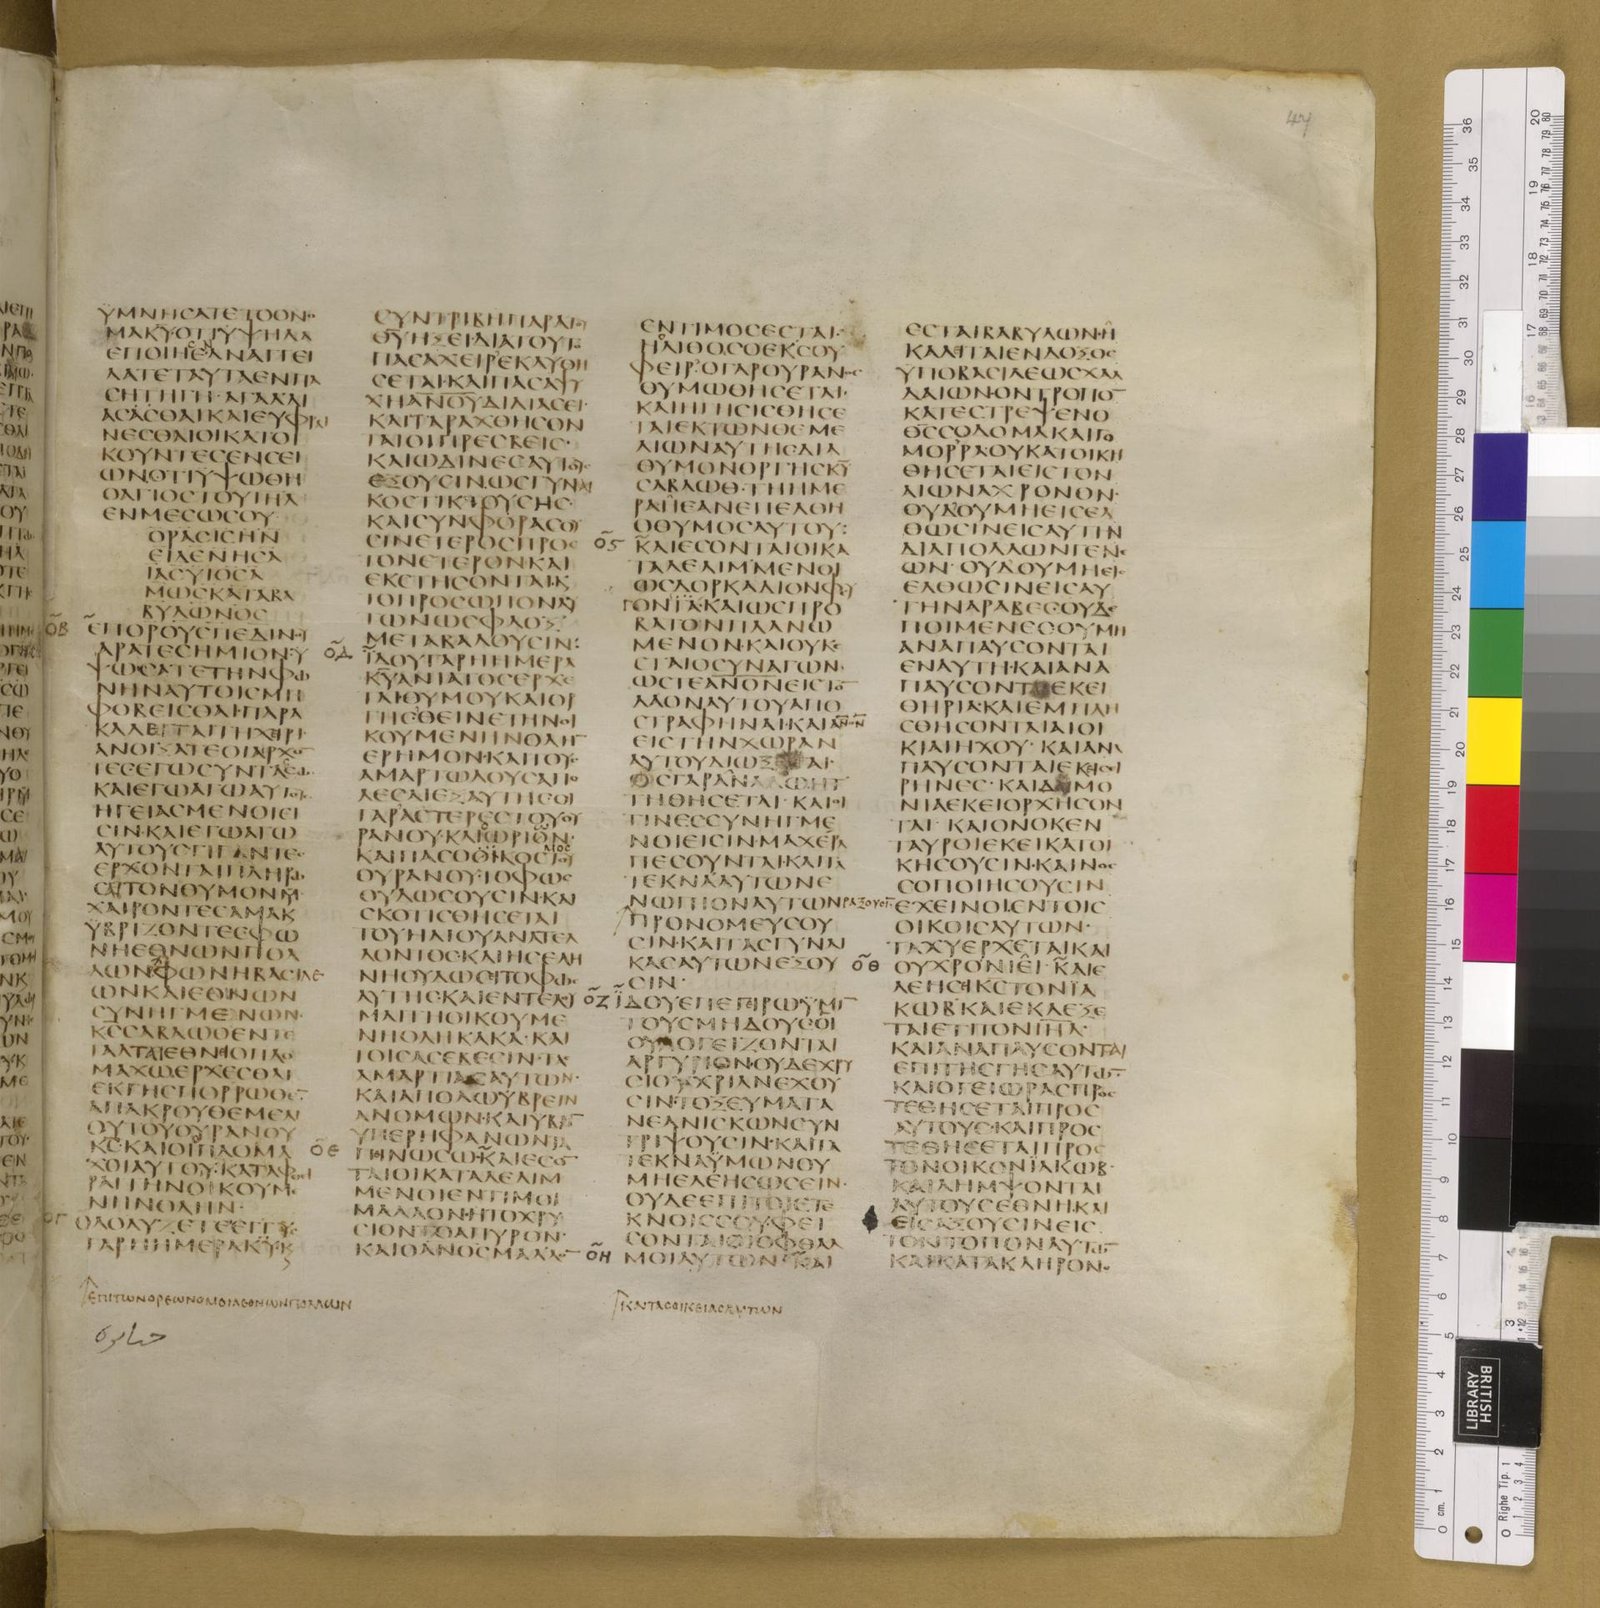 ΫΜΝΗϹΑΤΕΤΟΟΝΟ
ΜΑΚΥΟΤΙΫΨΗΛΑ
ΕΠΟΙΗϹΕΝΑΝΑΓΓΕΙ
ΛΑΤΕΤΑΥΤΑΕΝΠΑ
ϹΗΤΗΓΗ·ΑΓΑΛΛΙ
ΑϹΑϹΘΑΙΚΑΙΕΥΦΡΑΙ
ΝΕϹΘΑΙΟΙΚΑΤΟΙ
ΚΟΥΝΤΕϹΕΝϹΕΙ
ΩΝΟΤΙΫΨΩΘΗ
ΟΑΓΙΟϹΤΟΥΙΗΛ
ΕΝΜΕϹΩϹΟΥ
ΟΡΑϹΙϹΗΝ
ΕΙΔΕΝΗϹΑ
ΙΑϹΥΙΟϹΑ
ΜΩϹΚΑΤΑΒΑ
ΒΥΛΩΝΟϹ
ΟΒ ΕΠΟΡΟΥϹΠΕΔΙΝΟΥ
ΑΡΑΤΕϹΗΜΙΟΝ·Υ
ΨΩϹΑΤΕΤΗΝΦΩ
ΝΗΝΑΥΤΟΙϹΜΗ
ΦΟΒΕΙϹΘΑΙ·ΠΑΡΑ
ΚΑΛΕΙΤΑΙΤΗΧΕΙΡΙ
ΑΝΟΙΞΑΤΕΟΙΑΡΧΟ̅
ΤΕϹΕΓΩϹΥΝΤΑϹϹΩ
ΚΑΙΕΓΩΑΓΩΑΥΤΟΥϹ
ΗΓΕΙΑϹΜΕΝΟΙΕΙ
ϹΙΝ·ΚΑΙΕΓΩΑΓΩ
ΑΥΤΟΥϹΓΙΓΑΝΤΕϹ
ΕΡΧΟΝΤΑΙΠΛΗΡΩ
ϹΑΙΤΟΝΘΥΜΟΝΜΟΥ
ΧΑΙΡΟΝΤΕϹΑΜΑΚ
ΫΒΡΙΖΟΝΤΕϹΦΩ
ΝΗΕΘΝΩΝΠΟΛ
ΛΩΝΦΩΝΗΒΑϹΙΛΕ
ΩΝΚΑΙΕΘΝΩΝ
ϹΥΝΗΓΜΕΝΩΝ·
ΚϹϹΑΒΑΩΘΕΝΤΕ
ΤΑΛΤΑΙΕΘΝΙΟΠΛΟ
ΜΑΧΩΕΡΧΕϹΘΑΙ
ΕΚΓΗϹΠΟΡΡΩΘΕ̅
ΑΠΑΚΡΟΥΘΕΜΕΛΙ
ΟΥΤΟΥΟΥΡΑΝΟΥ
ΚϹΚΑΙΟΙΟΠΛΟΜΑ
ΧΟΙΑΥΤΟΥ·ΚΑΤΑΦΘΙ
ΡΑΙΤΗΝΟΙΚΟΥΜΕ
ΝΗΝΟΛΗΝ·
ΟΓ ΟΛΟΛΥΖΕΤΕΕΓΓΥϹ
ΓΑΡΗΗΜΕΡΑΚΥ·Κ
ΕΠΙΤΩΝΟΡΕΩΝΟΜΟΙΑΕΘΝΩΝΠΟΛΛΩΝ
ϹΥΝΤΡΙΒΗΠΑΡΑΤΟΥ
ΘΥΗΞΕΙ·ΔΙΑΤΟΥΤΟ
ΠΑϹΑΧΕΙΡΕΚΛΥΘΗ
ϹΕΤΑΙ·ΚΑΙΠΑϹΑΨΥ
ΧΗΑΝΟΥΔΙΛΙΑϹΕΙ·
ΚΑΙΤΑΡΑΧΘΗϹΟΝ
ΤΑΙΟΙΠΡΕϹΒΕΙϹ·
ΚΑΙΩΔΙΝΕϹΑΥΤΟΥϹ
ΕΞΟΥϹΙΝΩϹΓΥΝΑΙ
ΚΟϹΤΙΚΤΟΥϹΗϹ·
ΚΑΙϹΥΝΦΟΡΑϹΟΥ
ϹΙΝΕΤΕΡΟϹΠΡΟϹ
ΤΟΝΕΤΕΡΟΝΚΑΙ
ΕΚϹΤΗϹΟΝΤΑΙ·Κ
ΤΟΠΡΟϹΩΠΟΝΑΥ
ΤΩΝΩϹΦΛΟΞ
ΜΕΤΑΒΑΛΟΥϹΙΝ:
ΟΔ ΪΔΟΥΓΑΡΗΗΜΕΡΑ
ΚΥΑΝΙΑΤΟϹΕΡΧΕ
ΤΑΙΘΥΜΟΥΚΑΙΟΡ
ΓΗϹΘΕΙΝΕΤΗΝΟΙ
ΚΟΥΜΕΝΗΝΟΛΗ̅
ΕΡΗΜΟΝ·ΚΑΙΤΟΥϹ
ΑΜΑΡΤΩΛΟΥϹΑΠΟ
ΛΕϹΑΙΕΞΑΥΤΗϹΟΙ
ΓΑΡΑϹΤΕΡΕϹΤΟΥΟΥ
ΡΑΝΟΥ·ΚΑΙΩΡΙΩΝ·
ΚΑΙΠΑϹΟΚΟϹΜΟϹΤΟΥ
ΟΥΡΑΝΟΥ·ΤΟΦΩϹ
ΟΥΔΩϹΟΥϹΙΝ·ΚΑΙ
ϹΚΟΤΙϹΘΗϹΕΤΑΙ
ΤΟΥΗΛΙΟΥΑΝΑΤΕΛ
ΛΟΝΤΟϹ·ΚΑΙΗϹΕΛΗ
ΝΗΟΥΔΩϹΙΤΟΦΩϹ
ΑΥΤΗϹ·ΚΑΙΕΝΤΕΛΟΥ
ΜΑΙΤΗΟΙΚΟΥΜΕ
ΝΗΟΛΗΚΑΚΑ·ΚΑΙ
ΤΟΙϹΑϹΕΒΕϹΙΝ·ΤΑϹ
ΑΜΑΡΤΙΑϹΑΥΤΩΝ·
ΚΑΙΑΠΟΛΩΫΒΡΕΙΝ
ΑΝΟΜΩΝ·ΚΑΙΥΒΡΙ̅
ΥΠΕΡΗΦΑΝΩΝΤΑ
ΟΕ ΠΙΝΩϹΩ·ΚΑΙΕϹΟ̅
ΤΑΙΟΙΚΑΤΑΛΕΛΙΜ
ΜΕΝΟΙΕΝΤΙΜΟΙ
ΜΑΛΛΟΝΗΤΟΧΡΥ
ϹΙΟΝΤΟΑΠΥΡΟΝ·
ΚΑΙΟΑΝΟϹΜΑΛΛΟ̅
ΕΝΤΙΜΟϹΕϹΤΑΙ·
ΗΛΙΘΟϹΟΕΚϹΟΥ
ΦΕΙΡ·ΟΓΑΡΟΥΡΑΝΟϹ
ΘΥΜΩΘΗϹΕΤΑΙ·
ΚΑΙΗΓΗϹΙϹΘΗϹΕ
ΤΑΙΕΚΤΩΝΘΕΜΕ
ΛΙΩΝΑΥΤΗϹΔΙΑ
ΘΥΜΟΝΟΡΓΗϹΚΥ
ϹΑΒΑΩΘ·ΤΗΗΜΕ
ΡΑΗΕΑΝΕΠΕΛΘΗ
ΟΘΥΜΟϹΑΥΤΟΥ:
ΟϚ ΚΑΙΕϹΟΝΤΑΙΟΙΚΑ
ΤΑΛΕΛΙΜΜΕΝΟΙ
ΩϹΔΟΡΚΑΔΙΟΝΦΕΥ
ΓΟΝΤΑ·ΚΑΙΩϹΠΡΟ
ΒΑΤΟΝΠΛΑΝΩ
ΜΕΝΟΝ·ΚΑΙΟΥΚΕ
ϹΤΑΙΟϹΥΝΑΓΩΝ·
ΩϹΤΕΑΝΟΝΕΙϹΤΟ̅
ΛΑΟΝΑΥΤΟΥΑΠΟ
ϹΤΡΑΦΗΝΑΙ·ΚΑΙΑΝΟΝ
ΕΙϹΤΗΝΧΩΡΑΝ
ΑΥΤΟΥΔΙΩΞΕΤΑΙ·
ΟϹΓΑΡΑΝΑΛΩΗΤ
ΤΗΘΗϹΕΤΑΙ·ΚΑΙΟΙ
ΤΙΝΕϹϹΥΝΗΓΜΕ
ΝΟΙΕΙϹΙΝ·ΜΑΧΕΡΑ
ΠΕϹΟΥΝΤΑΙ·ΚΑΙΤΑ
ΤΕΚΝΑΑΥΤΩΝΕ
ΝΩΠΙΟΝΑΥΤΩΝΡΑΞΟΥϹΙ̅
ΠΡΟΝΟΜΕΥϹΟΥ
ϹΙΝ·ΚΑΙΤΑϹΓΥΝΑΙ
ΚΑϹΑΥΤΩΝΕΞΟΥ
ϹΙΝ·
ΟΖ ΪΔΟΥΕΠΕΓΙΡΩΫΜΙ̅
ΤΟΥϹΜΗΔΟΥϹΟΙ
ΟΥΛΟΓΕΙΖΟΝΤΑΙ
ΑΡΓΥΡΙΟΝ·ΟΥΔΕΧΡΥ
ϹΙΟΥΧΡΙΑΝΕΧΟΥ
ϹΙΝ·ΤΟΞΕΥΜΑΤΑ
ΝΕΑΝΙϹΚΩΝϹΥΝ
ΤΡΙΨΟΥϹΙΝ·ΚΑΙΤΑ
ΤΕΚΝΑΫΜΩΝΟΥ
ΜΗΕΛΕΗϹΩϹΕΙΝ·
ΟΥΔΕΕΠΙΤΟΙϹΤΕ
ΚΝΟΙϹϹΟΥΦΕΙ
ϹΟΝΤΑΙΟΙΟΦΘΑΛ
ΟΗ ΜΟΙΑΥΤΩΝ·ΚΑΙ
ΚΑΙΤΑϹΟΙΚΕΙΑϹΑΥΤΩΝ
47
ΕϹΤΑΙΒΑΒΥΛΩΝ·Η
ΚΑΛΙΤΑΙΕΝΔΟΞΟϹ
ΥΠΟΒΑϹΙΛΕΩϹΧΑΛ
ΔΑΙΩΝΟΝΤΡΟΠΟ̅
ΚΑΤΕϹΤΡΕΨΕΝΟ
ΘϹϹΟΔΟΜΑΚΑΙΓΟ
ΜΟΡΡΑΟΥΚΑΤΟΙΚΗ
ΘΗϹΕΤΑΙΕΙϹΤΟΝ
ΑΙΩΝΑΧΡΟΝΟΝ·
ΟΥΔΟΥΜΗΕΙϹΕΛ
ΘΩϹΙΝΕΙϹΑΥΤΗΝ
ΔΙΑΠΟΛΛΩΝΓΕΝΕ
ΩΝ·ΟΥΔΟΥΜΗΕΙϹ
ΕΛΘΩϹΙΝΕΙϹΑΥ
ΤΗΝΑΡΑΒΕϹΟΥΔΕ
ΠΟΙΜΕΝΕϹΟΥΜΗ
ΑΝΑΠΑΥϹΟΝΤΑΙ
ΕΝΑΥΤΗ·ΚΑΙΑΝΑ
ΠΑΥϹΟΝΤΕΕΚΕΙ
ΘΗΡΙΑ·ΚΑΙΕΜΠΛΗ
ϹΘΗϹΟΝΤΑΙΑΙΟΙ
ΚΙΑΙΗΧΟΥ·ΚΑΙΑΝΑ
ΠΑΥϹΟΝΤΑΙΕΚΕΙϹΙ
ΡΗΝΕϹ·ΚΑΙΔΑΙΜΟ
ΝΙΑΕΚΕΙΟΡΧΗϹΟΝ
ΤΑΙ·ΚΑΙΟΝΟΚΕΝ
ΤΑΥΡΟΙΕΚΕΙΚΑΤΟΙ
ΚΗϹΟΥϹΙΝ·ΚΑΙΝΟϹ
ϹΟΠΟΙΗϹΟΥϹΙΝ
ΕΧΕΙΝΟΙΕΝΤΟΙϹ
ΟΙΚΟΙϹΑΥΤΩΝ·
ΤΑΧΥΕΡΧΕΤΑΙΚΑΙ
ΟΘ ΟΥΧΡΟΝΙΕΙ·ΚΑΙΕ
ΛΕΗϹΙΚϹΤΟΝΪΑ
ΚΩΒ·ΚΑΙΕΚΛΕΞΕ
ΤΑΙΕΤΙΤΟΝΙΗΛ·
ΚΑΙΑΝΑΠΑΥϹΟΝΤΑΙ
ΕΠΙΤΗϹΓΗϹΑΥΤΩ̅
ΚΑΙΟΓΕΙΩΡΑϹΠΡΟϹ
ΤΕΘΗϹΕΤΑΙΠΡΟϹ
ΑΥΤΟΥϹ·ΚΑΙΠΡΟϹ
ΤΕΘΗϹΕΤΑΙΠΡΟϹ
ΤΟΝΟΙΚΟΝΪΑΚΩΒ·
ΚΑΙΛΗΜΨΟΝΤΑΙ
ΑΥΤΟΥϹΕΘΝΗ·ΚΑΙ
ΕΙϹΑΞΟΥϹΙΝΕΙϹ
ΤΟΝΤΟΠΟΝΑΥΤΩ̅
ΚΑΙΚΑΤΑΚΛΗΡΟΝΟ
BRITISH
LIBRARY